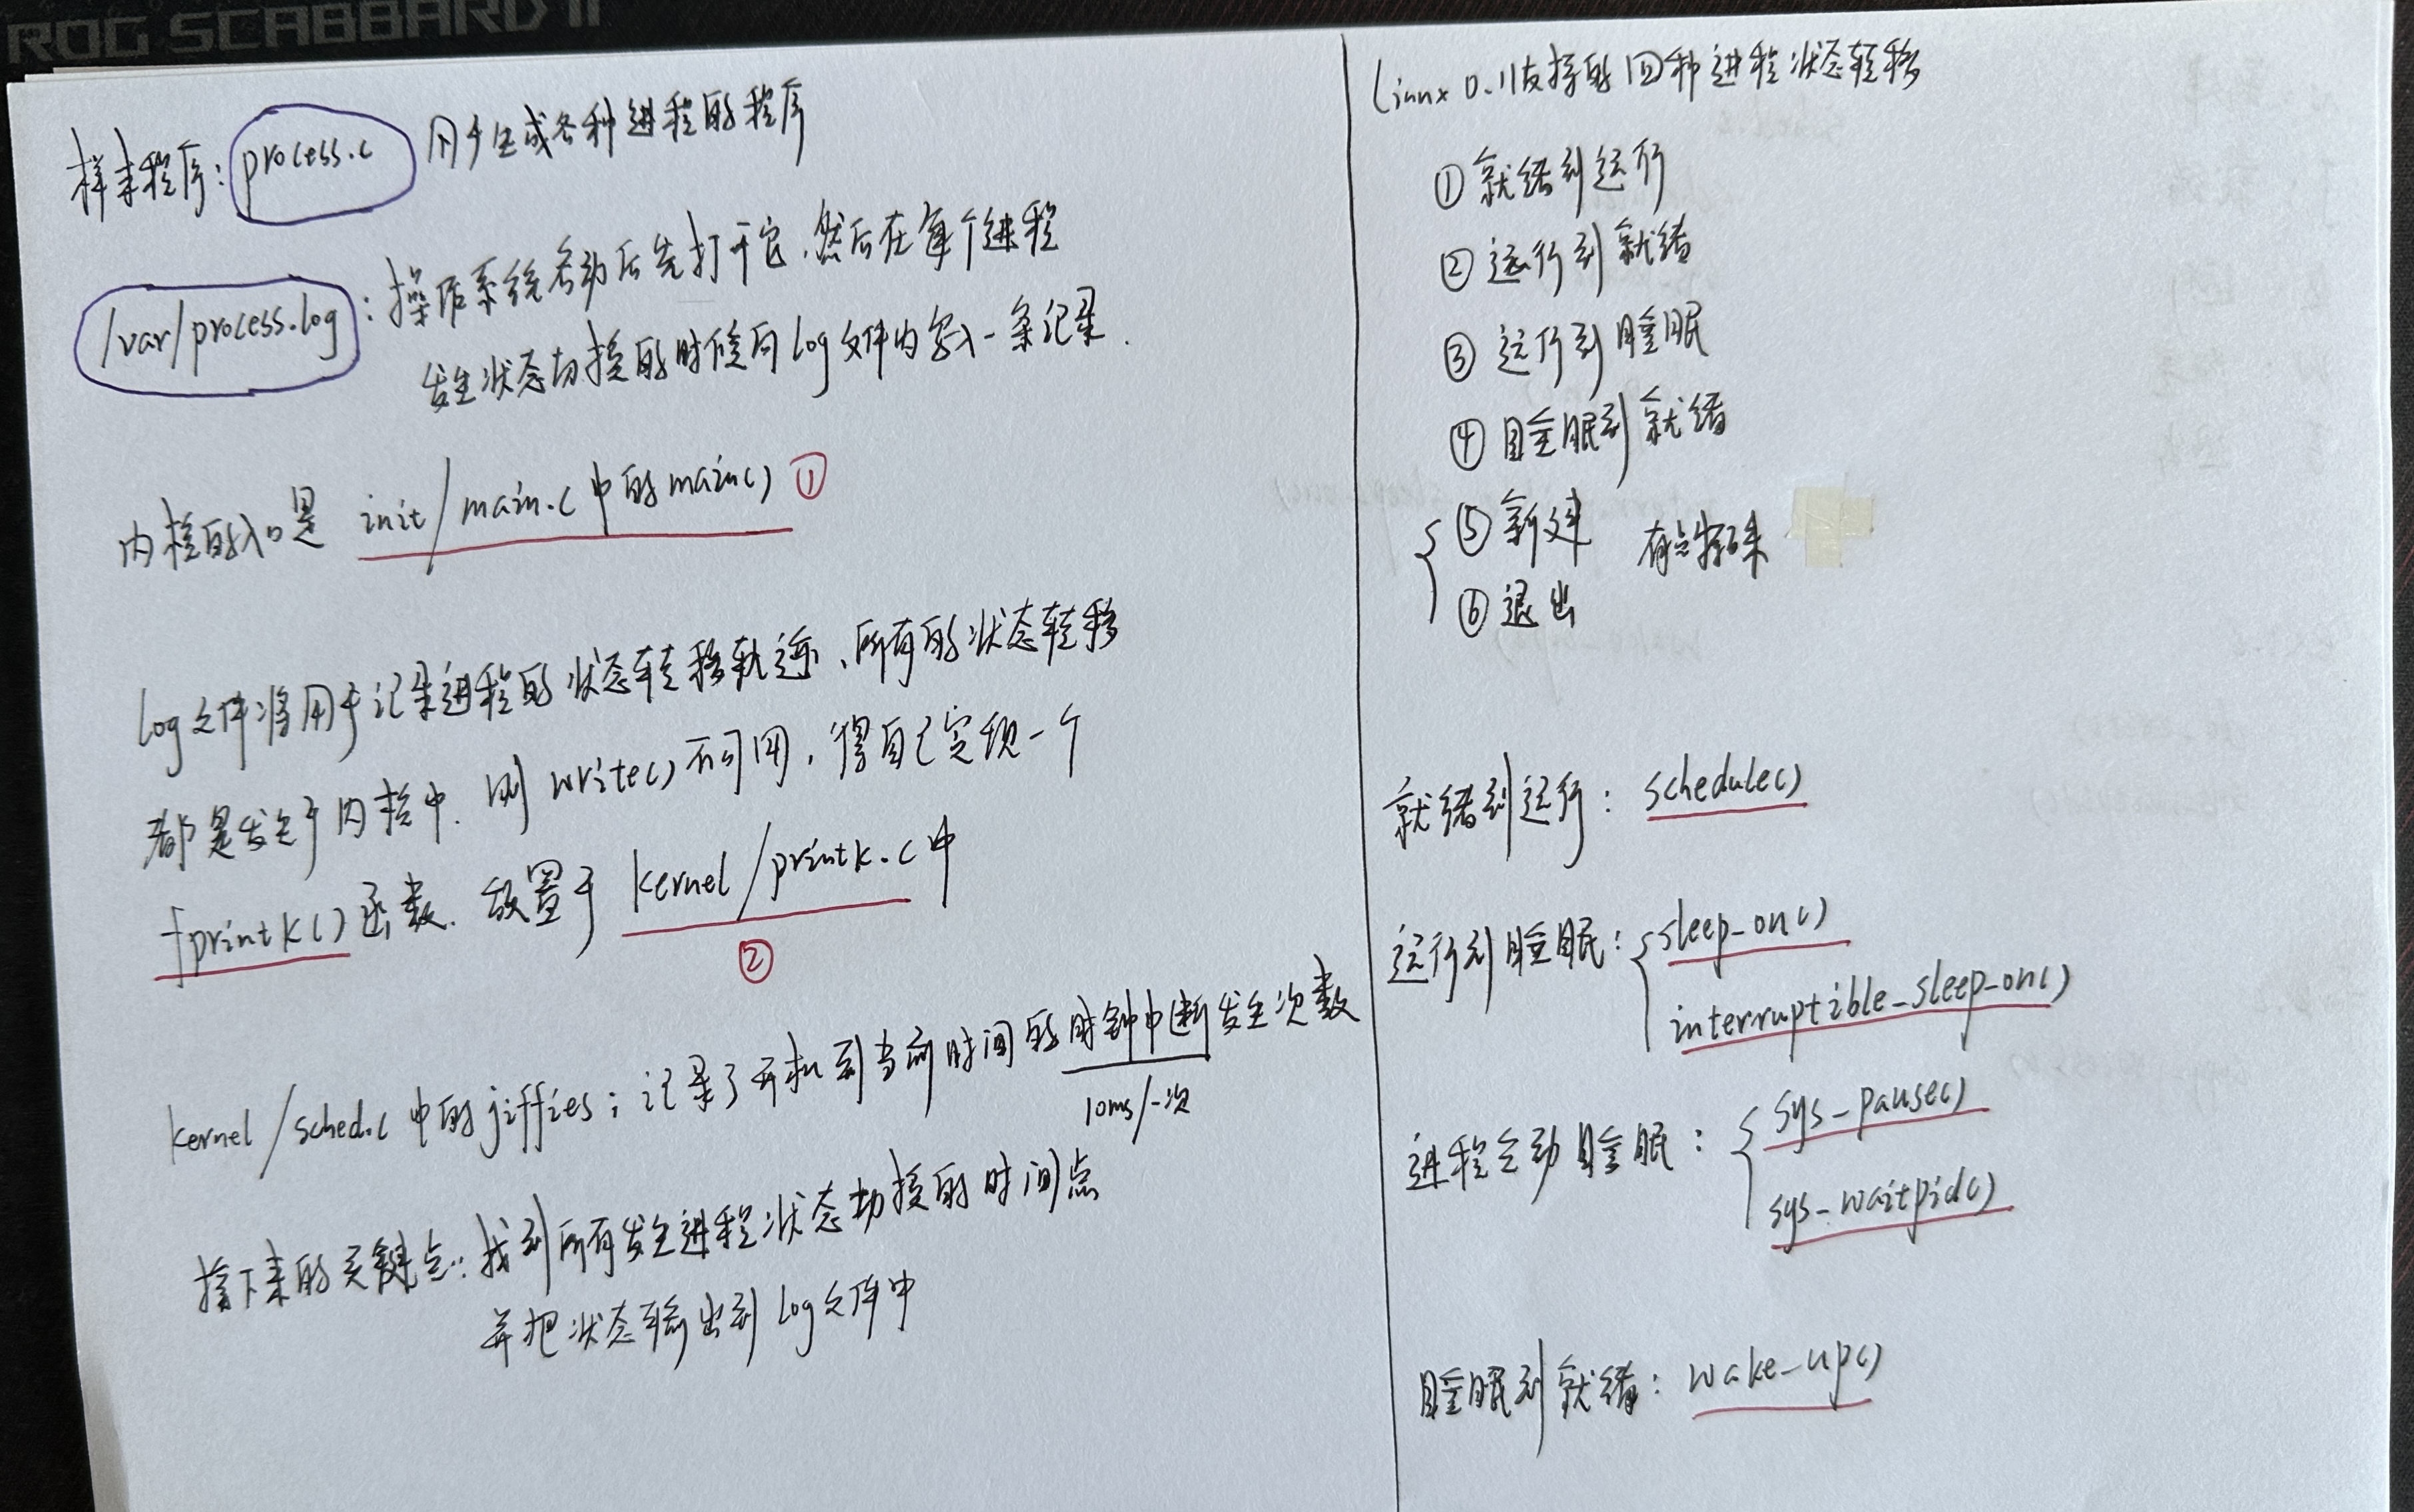 ROG SCABBARD II
样本程序: process.c 用于生成各种进程的程序
/var/process.log : 操作系统启动后先打开它,然后在每个进程
发生状态切换的时候向log文件内写入一条记录.
内核的入口是 init/main.c中的main() ①
log文件将用于记录进程的状态转移轨迹、所有的状态转移
都是发生于内核中. 则write()不可用,得自己实现一个
fprintk()函数. 放置于 kernel/printk.c中
②
kernel/sched.c中的jiffies: 记录了开机到当前时间的时钟中断发生次数
10ms/一次
接下来的关键点: 找到所有发生进程状态切换的时间点
并把状态输出到log文件中
Linux 0.11支持的四种进程状态转移
①就绪到运行
②运行到就绪
③运行到睡眠
④睡眠到就绪
⑤新建 有点特殊
⑥退出
就绪到运行: schedule()
运行到睡眠: sleep_on()
interruptible_sleep_on()
进程主动睡眠: sys_pause()
sys_waitpid()
睡眠到就绪: wake_up()